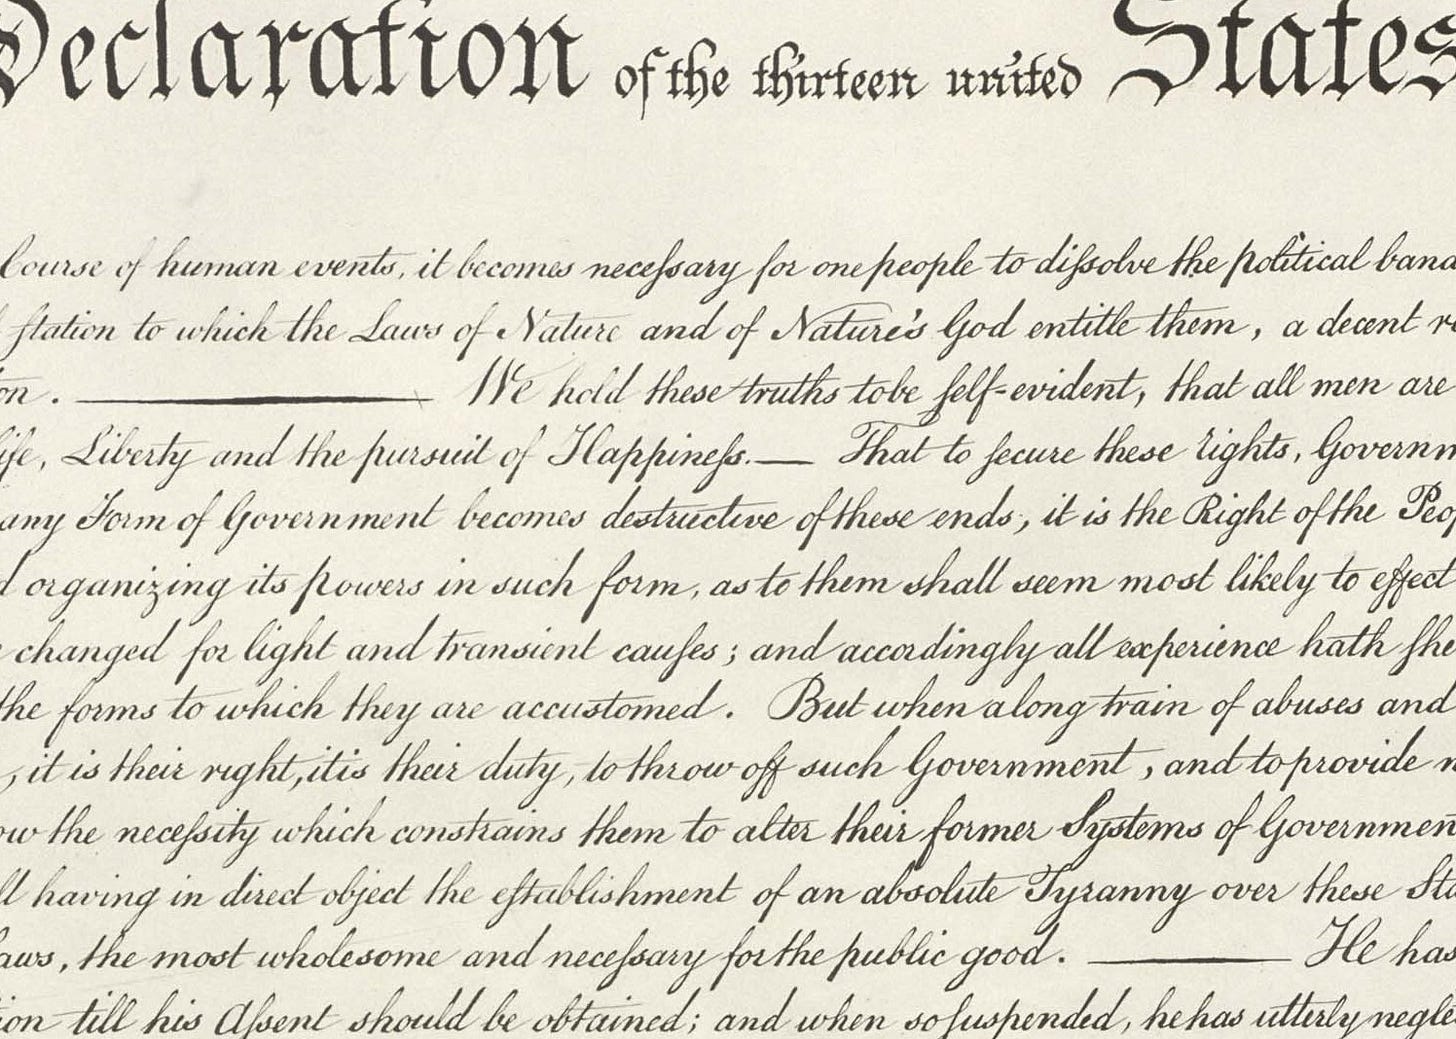 Declaration of the thirteen united States
Course of human events, it becomes neceſsary for one people to diſsolve the political band
ſtation to which the Laws of Nature and of Nature's God entitle them, a decent re
on. ——— We hold these truths to be ſelf-evident, that all men are
ife, Liberty and the pursuit of Happineſs.— That to ſecure these rights, Governm
any Form of Government becomes destructive of these ends, it is the Right of the Peop
d organizing its powers in such form, as to them shall seem most likely to effect
changed for light and transient cauſes; and accordingly all experience hath ſhe
the forms to which they are accustomed. But when a long train of abuses and
, it is their right, it is their duty, to throw off such Government, and to provide n
ow the neceſsity which constrains them to alter their former Systems of Government
ll having in direct object the eſtablishment of an absolute Tyranny over these Sta
aws, the most wholesome and neceſsary for the public good. ——— He has
ion till his Aſsent should be obtained; and when so ſuspended, he has utterly negle